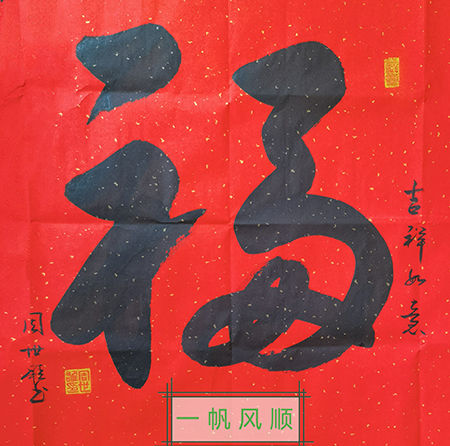 福
吉祥如意
周世
一帆风顺